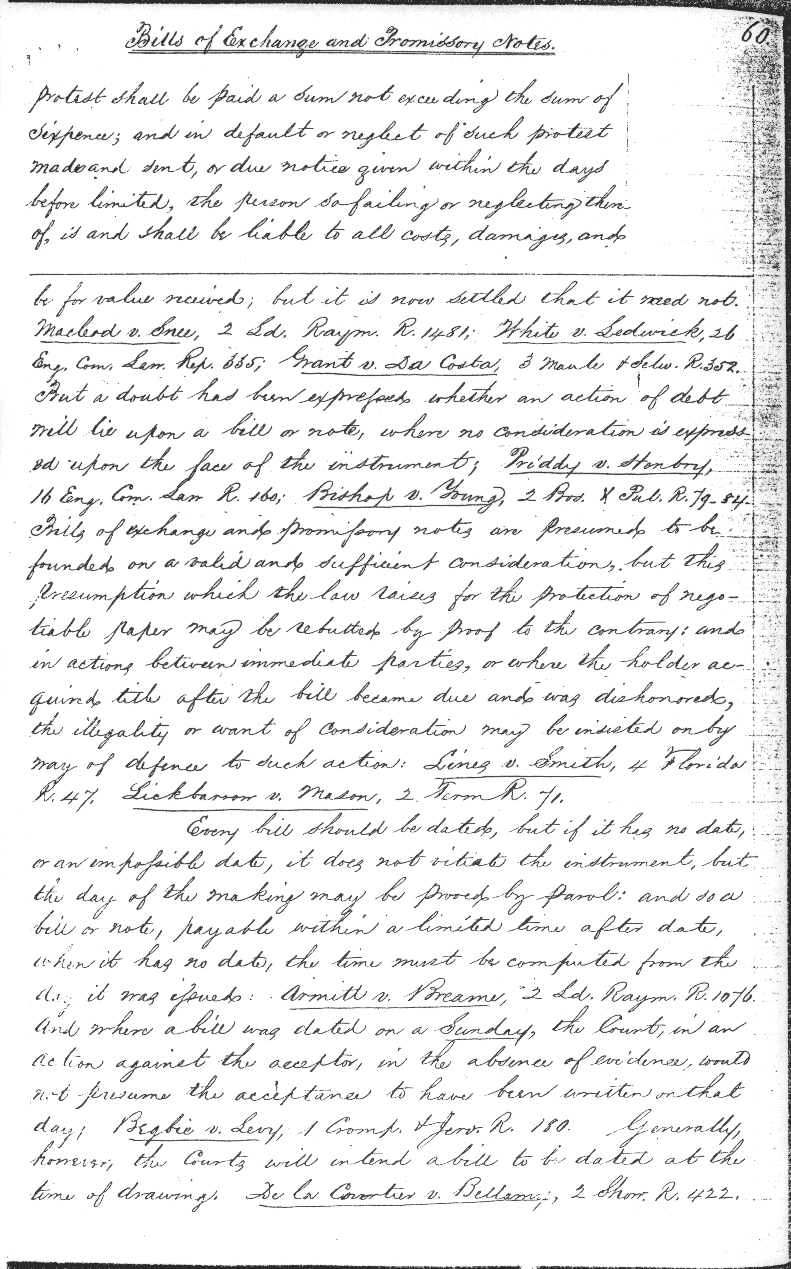 Bills of Exchange and Promissory Notes.
60.
protest shall be paid a sum not exceeding the sum of
sixpence; and in default or neglect of such protest
made and sent, or due notice given within the days
before limited, the person so failing or neglecting there
of, is and shall be liable to all costs, damages, and
be for value received; but it is now settled that it need not.
Macleod v. Snee, 2 Ld. Raym. R. 1481; White v. Ledwick, 26
Eng. Com. Law. Rep. 335; Grant v. Da Costa, 3 Maule & Selw. R. 352.
But a doubt has been expressed whether an action of debt
will lie upon a bill or note, where no consideration is express-
ed upon the face of the instrument; Priddy v. Henbry,
16 Eng. Com. Law R. 160; Bishop v. Young, 2 Bos. & Pul. R. 79-84
Bills of exchange and promissory notes are presumed to be
founded on a valid and sufficient consideration, but this
presumption which the law raises for the protection of nego-
tiable paper may be rebutted by proof to the contrary: and
in actions between immediate parties, or where the holder ac-
quired title after the bill became due and was dishonored,
the illegality or want of consideration may be insisted on by
way of defence to such action: Lines v. Smith, 4 Florida
R. 47. Lickbarrow v. Mason, 2 Term R. 71.
Every bill should be dated, but if it has no date,
or an impossible date, it does not vitiate the instrument, but
the day of the making may be proved by parol: and so a
bill or note, payable within a limited time after date,
when it has no date, the time must be computed from the
day it was issued: Armitt v. Breame, 2 Ld. Raym. R. 1076.
And where a bill was dated on a Sunday, the Court, in an
action against the acceptor, in the absence of evidence, would
not presume the acceptance to have been written on that
day; Begbie v. Levy, 1 Cromp. & Jerv. R. 180. Generally,
however, the Courts will intend a bill to be dated at the
time of drawing. De la Courtier v. Bellamy, 2 Show. R. 422.